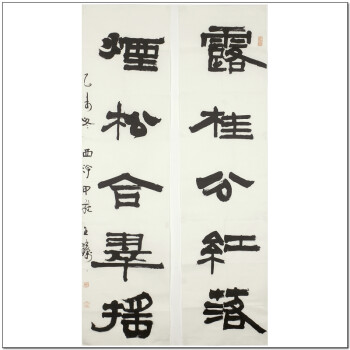 露桂分紅落
煙松合翠搖
乙未冬 西泠印社 王